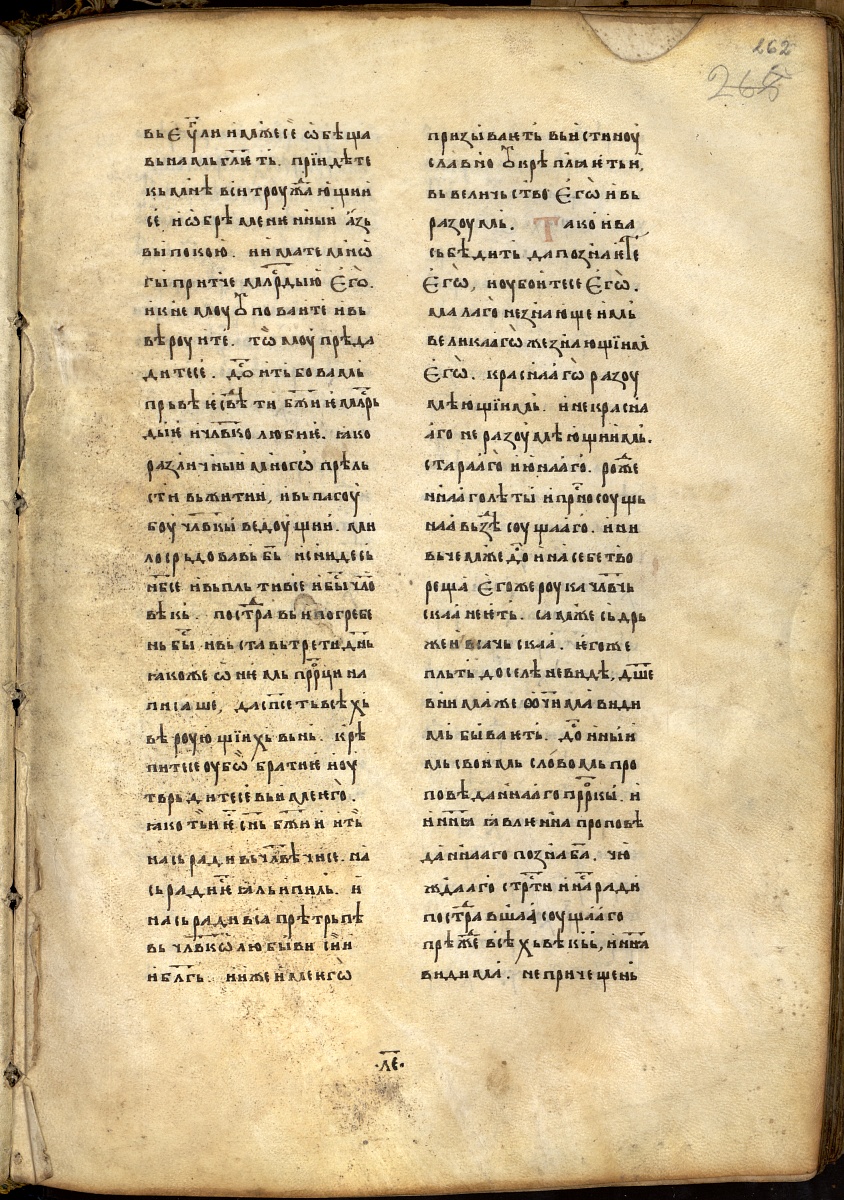 262
265
вь Є ѵ҆лїи и꙳ мже се ѡбѣща
вь намь гл҃ѥть. прїидѣте
кь мнѣ вси троуж҃аюшии
се и ѡбрѣменѥнныи а҆зь
вы покою. ни мате мнѡ
гы притче млр҃дыю Єгѡ̀.
нѥ нѥ моу ꙋповаите и вь
вѣроуите. тѡ̀моу прѣда
дите се. дх҃ѡ҆ить бо вамь
прьвѣѥ свѣ҃ти бж҃иѥ млр҃ь
дыѥ и чл҃вколюбиѥ. ꙗко
различныи многѡ прѣль
сти вь житии, и вь пагоу
боу чл҃вкы ведоущии. ми
лосрьдовавь бь҃ и снидесь
нб҃се и вьпльтивсе и бы҃ чло
вѣкь. постр҃авь и погребе
нь бы҃ и вьставь трети дн҃ь
ꙗкоже ѡ нѥмь прр҃ци на
писаше, да сп҃сеть всѣхь
вѣроующїихь вь нь. крѣ
питесе оубѡ̀ братиѥ и оу
тврьдитесе вь имѥ ѥго.
ꙗко ть ѥ҃ сн҃ь бж҃ии иже
нась ради вьчл҃вѣчисе. на
сь ради ѥ҃ ꙗль и пиль. и
нась ради вса прѣтрьпѣ
вь чл҃вкѡлюбьви сїи
и бл҃гь. ни же имѥ ѥгѡ̀
призываѥть вь истиноу
славно ꙋкрѣплꙗѥть и,
вь величьство Єгѡ̀ и вь
разоумь. Тако и ва
сь бѣдить да познаѥте
Єгѡ̀, и оубоитесе Єгѡ̀.
малаго незнающеимь
великаагѡ же знающїим
Єгѡ̀. краснаагѡ̀ разоу
мѣющїимь. и не красна
аго не разоумѣющиимь.
стараа҆го и юнааго. рож҃е
ннаа го лѣты и прн҃осоущь
наа вьзд҃ѣ соущааго. и ни
вьчемже дх҃о и на себе тво
реща Єгоже роука чл҃вчь
скаа нѥсть. самже сьдрь
жеи всачьскаа. ѥгоже
пльть доселѣ не видѣ, дш҃е
вними же ѻчима види
мь бываѥть. дх҃о нныи
мь своимь словомь про
повѣданнааго прр҃кы. и
нн҃ꙗ ꙗвлѥнна проповѣ
даннааго познаба. чю
ждааго стр҃ти и на҃ ради
постр҃авшаа соущааго
прѣж҃е всѣхь вѣкь, и нн҃ꙗ
видима. неприче щень
·л҃е·